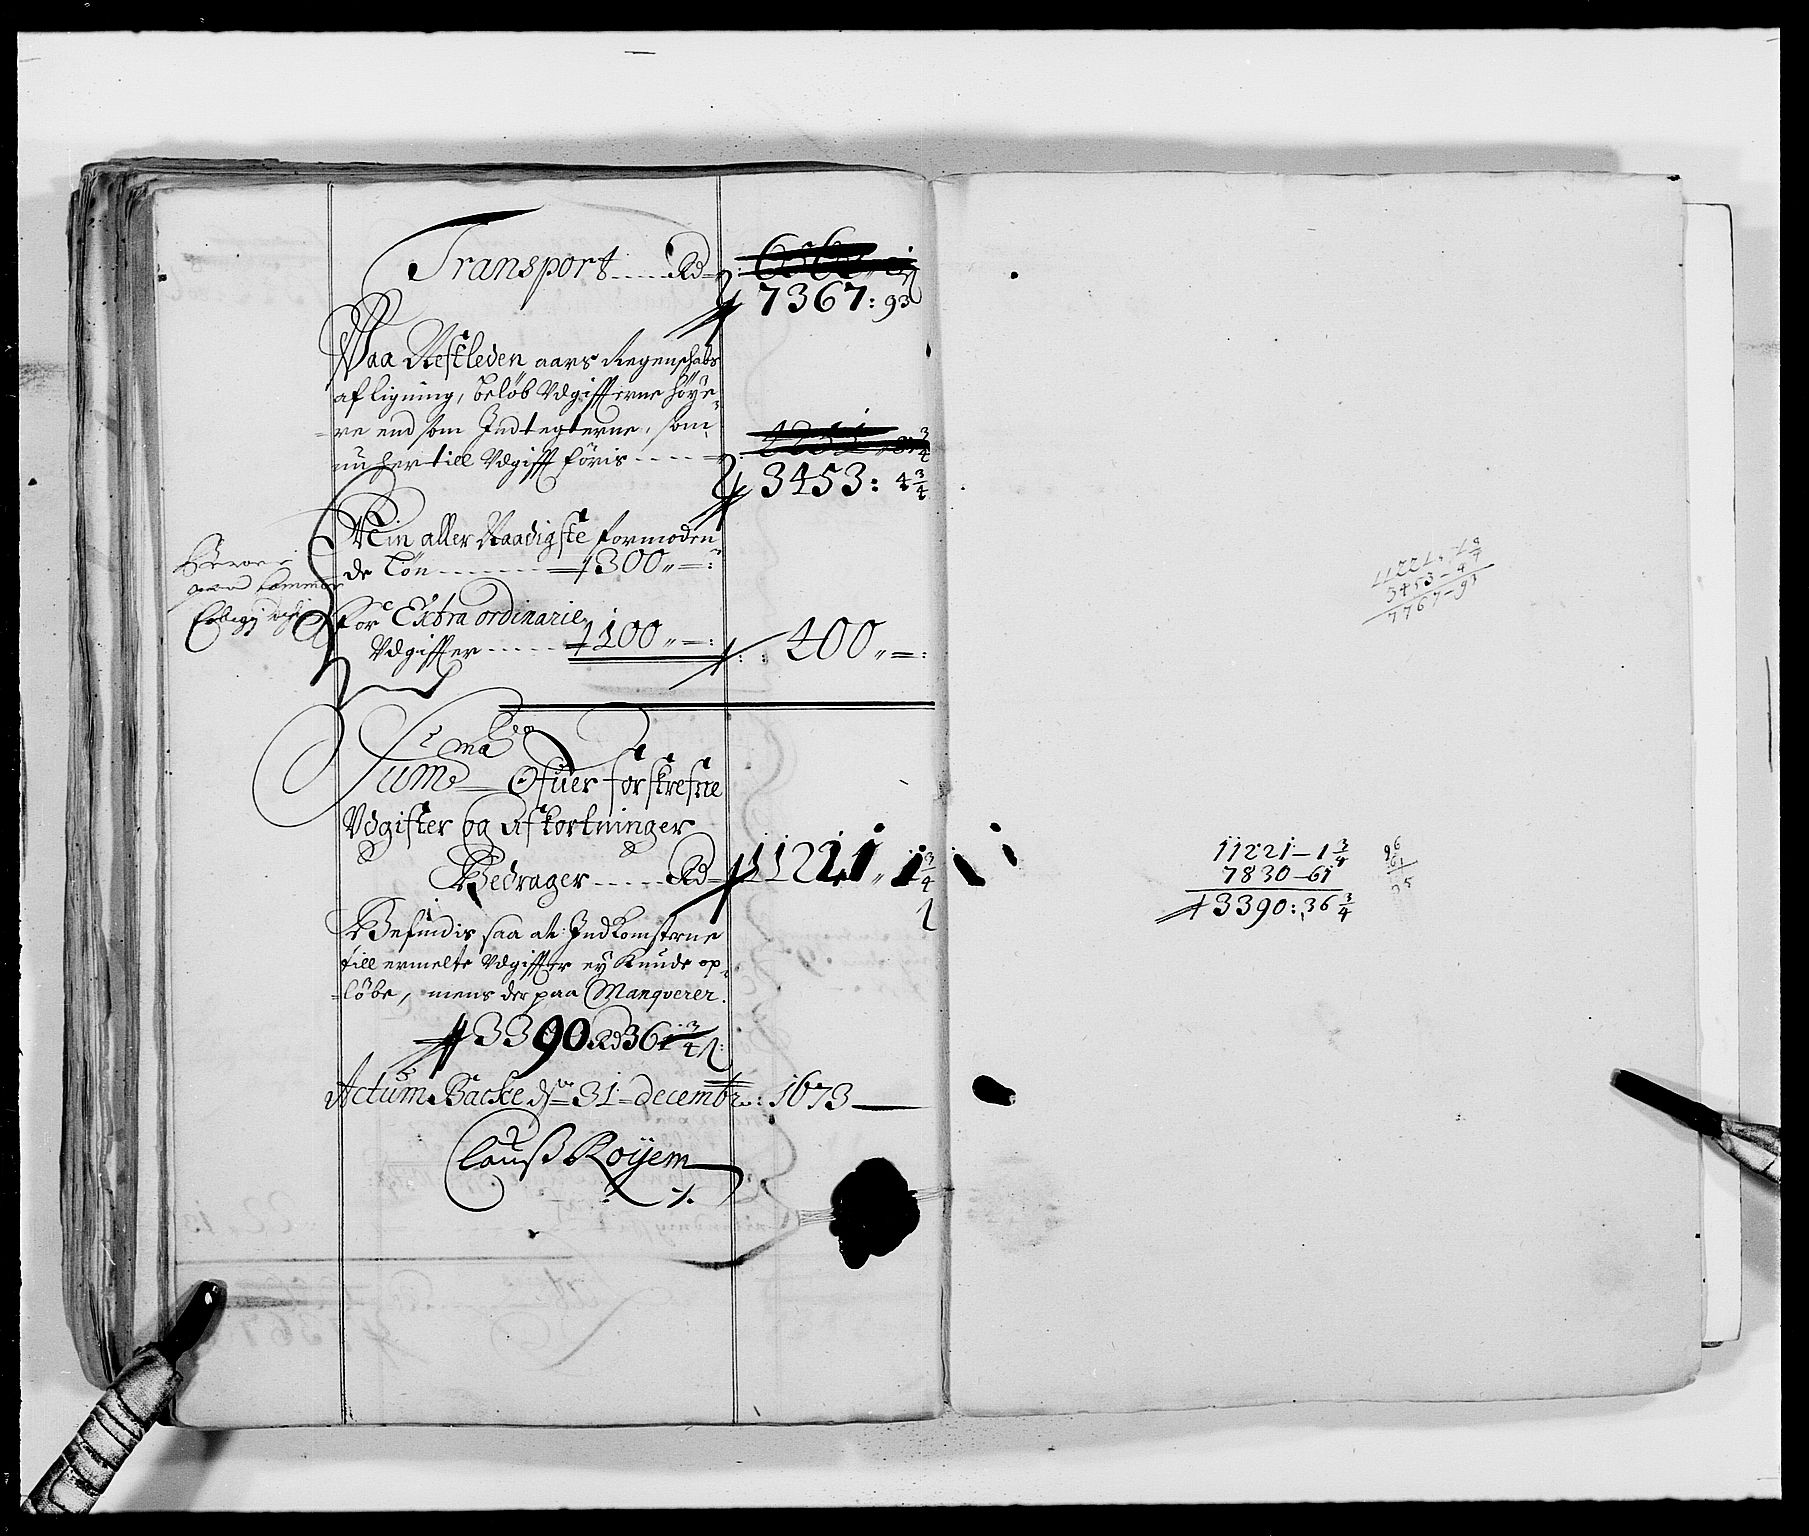 Transport ..... Rd 6362
7367: 93
Paa Nestleden aars Regenschabs
afligning, beløb Udgiffterne høye-
re end som Indtegterne, som
nu her till Udgifft føris ----
3453: 4 3/4
Min aller Naadigste formoden
de Løn ------- 300 „ =:
For Extra ordinarie
Udgiffter ----- 100 „ =: 400 „ =:
Suma Ofuer forskrefne
Udgifter og Afkortninger
Bedrager ..... Rd 11221 „ 1 3/4
Befindis saa at Indkomsterne
till ermelte Udgiffter ey kunde op-
løbe, mens der paa Manqverer.
3390 Rd 36 3/4
Actum Backe d 31 decembr: 1673
Clauß Röyem
11221 - 1 3/4
3453 - 4 3/4
7767 - 93
11221 - 1 3/4
7830 - 61
3390: 36 3/4
96
61
35